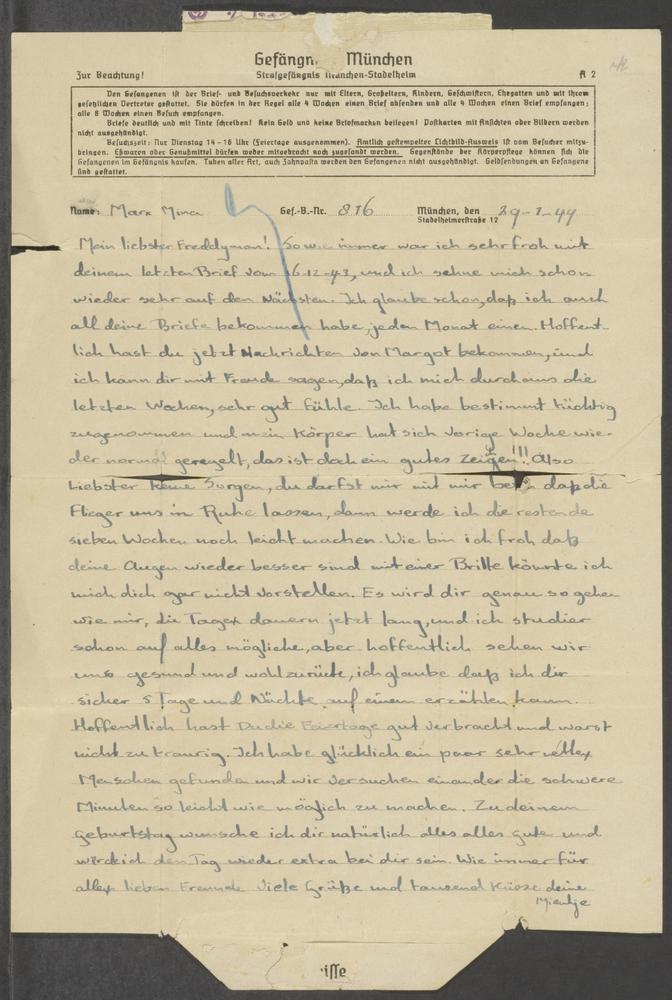 Gefängn. München
Zur Beachtung! Strafgefängnis München-Stadelheim A 2
Den Gefangenen ist der Brief- und Besuchsverkehr nur mit Eltern, Großeltern, Kindern, Geschwistern, Ehegatten und mit ihrem
gesetzlichen Vertreter gestattet. Sie dürfen in der Regel alle 4 Wochen einen Brief absenden und alle 4 Wochen einen Brief empfangen;
alle 8 Wochen einen Besuch empfangen.
Briefe deutlich und mit Tinte schreiben! Kein Geld und keine Briefmarken beilegen! Postkarten mit Ansichten oder Bildern werden
nicht ausgehändigt.
Besuchszeit: Nur Dienstag 14-16 Uhr (Feiertage ausgenommen). Amtlich gestempelter Lichtbild-Ausweis ist vom Besucher mitzu-
bringen. Eßwaren oder Genußmittel dürfen weder mitgebracht noch zugesandt werden. Gegenstände der Körperpflege können sich die
Gefangenen im Gefängnis kaufen. Tuben aller Art, auch Zahnpasta werden den Gefangenen nicht ausgehändigt. Geldsendungen an Gefangene
sind gestattet.
Name: Marx Mina Gef.-B.-Nr. 816 München, den 29-1-44
Stadelheimerstraße 12
Mein liebster Freddyman! So wie immer war ich sehr froh mit
deinem letzten Brief vom 16-12-43, und ich sehne mich schon
wieder sehr auf den Nächsten. Ich glaube schon, daß ich auch
all deine Briefe bekommen habe, jeden Monat einen. Hoffent-
lich hast du jetzt Nachrichten von Margot bekommen, und
ich kann dir mit Freude sagen, daß ich mich durchaus die
letzten Wochen, sehr gut fühle. Ich habe bestimmt tüchtig
zugenommen und mein Körper hat sich vorige Woche wie-
der normal geregelt, das ist doch ein gutes Zeigen!!! Also
Liebster keine Sorgen, du darfst nur mit mir beten daß die
Flieger uns in Ruhe lassen, dann werde ich die restende
sieben Wochen noch leicht machen. Wie bin ich froh daß
deine Augen wieder besser sind mit einer Brille könnte ich
mich dich gar nicht vorstellen. Es wird dir genau so gehen
wie mir, die Tagex dauern jetzt lang, und ich studier
schon auf alles mögliche, aber hoffentlich sehen wir
uns gesund und wohl zurück, ich glaube daß ich dir
sicher 5 Tage und Nächte auf einem erzählen kann.
Hoffentlich hast Du die Feiertage gut verbracht und warst
nicht zu traurig. Ich habe glücklich ein paar sehr nettex
Menschen gefunden und wir versuchen einander die schwere
Minuten so leicht wie möglich zu machen. Zu deinem
geburtstag wunsche ich dir natürlich alles alles gute und
würde ich den Tag wieder extra bei dir sein. Wie immer für
allex lieben Freunde viele Grüße und tausend Küsse deine
Mientje
isse